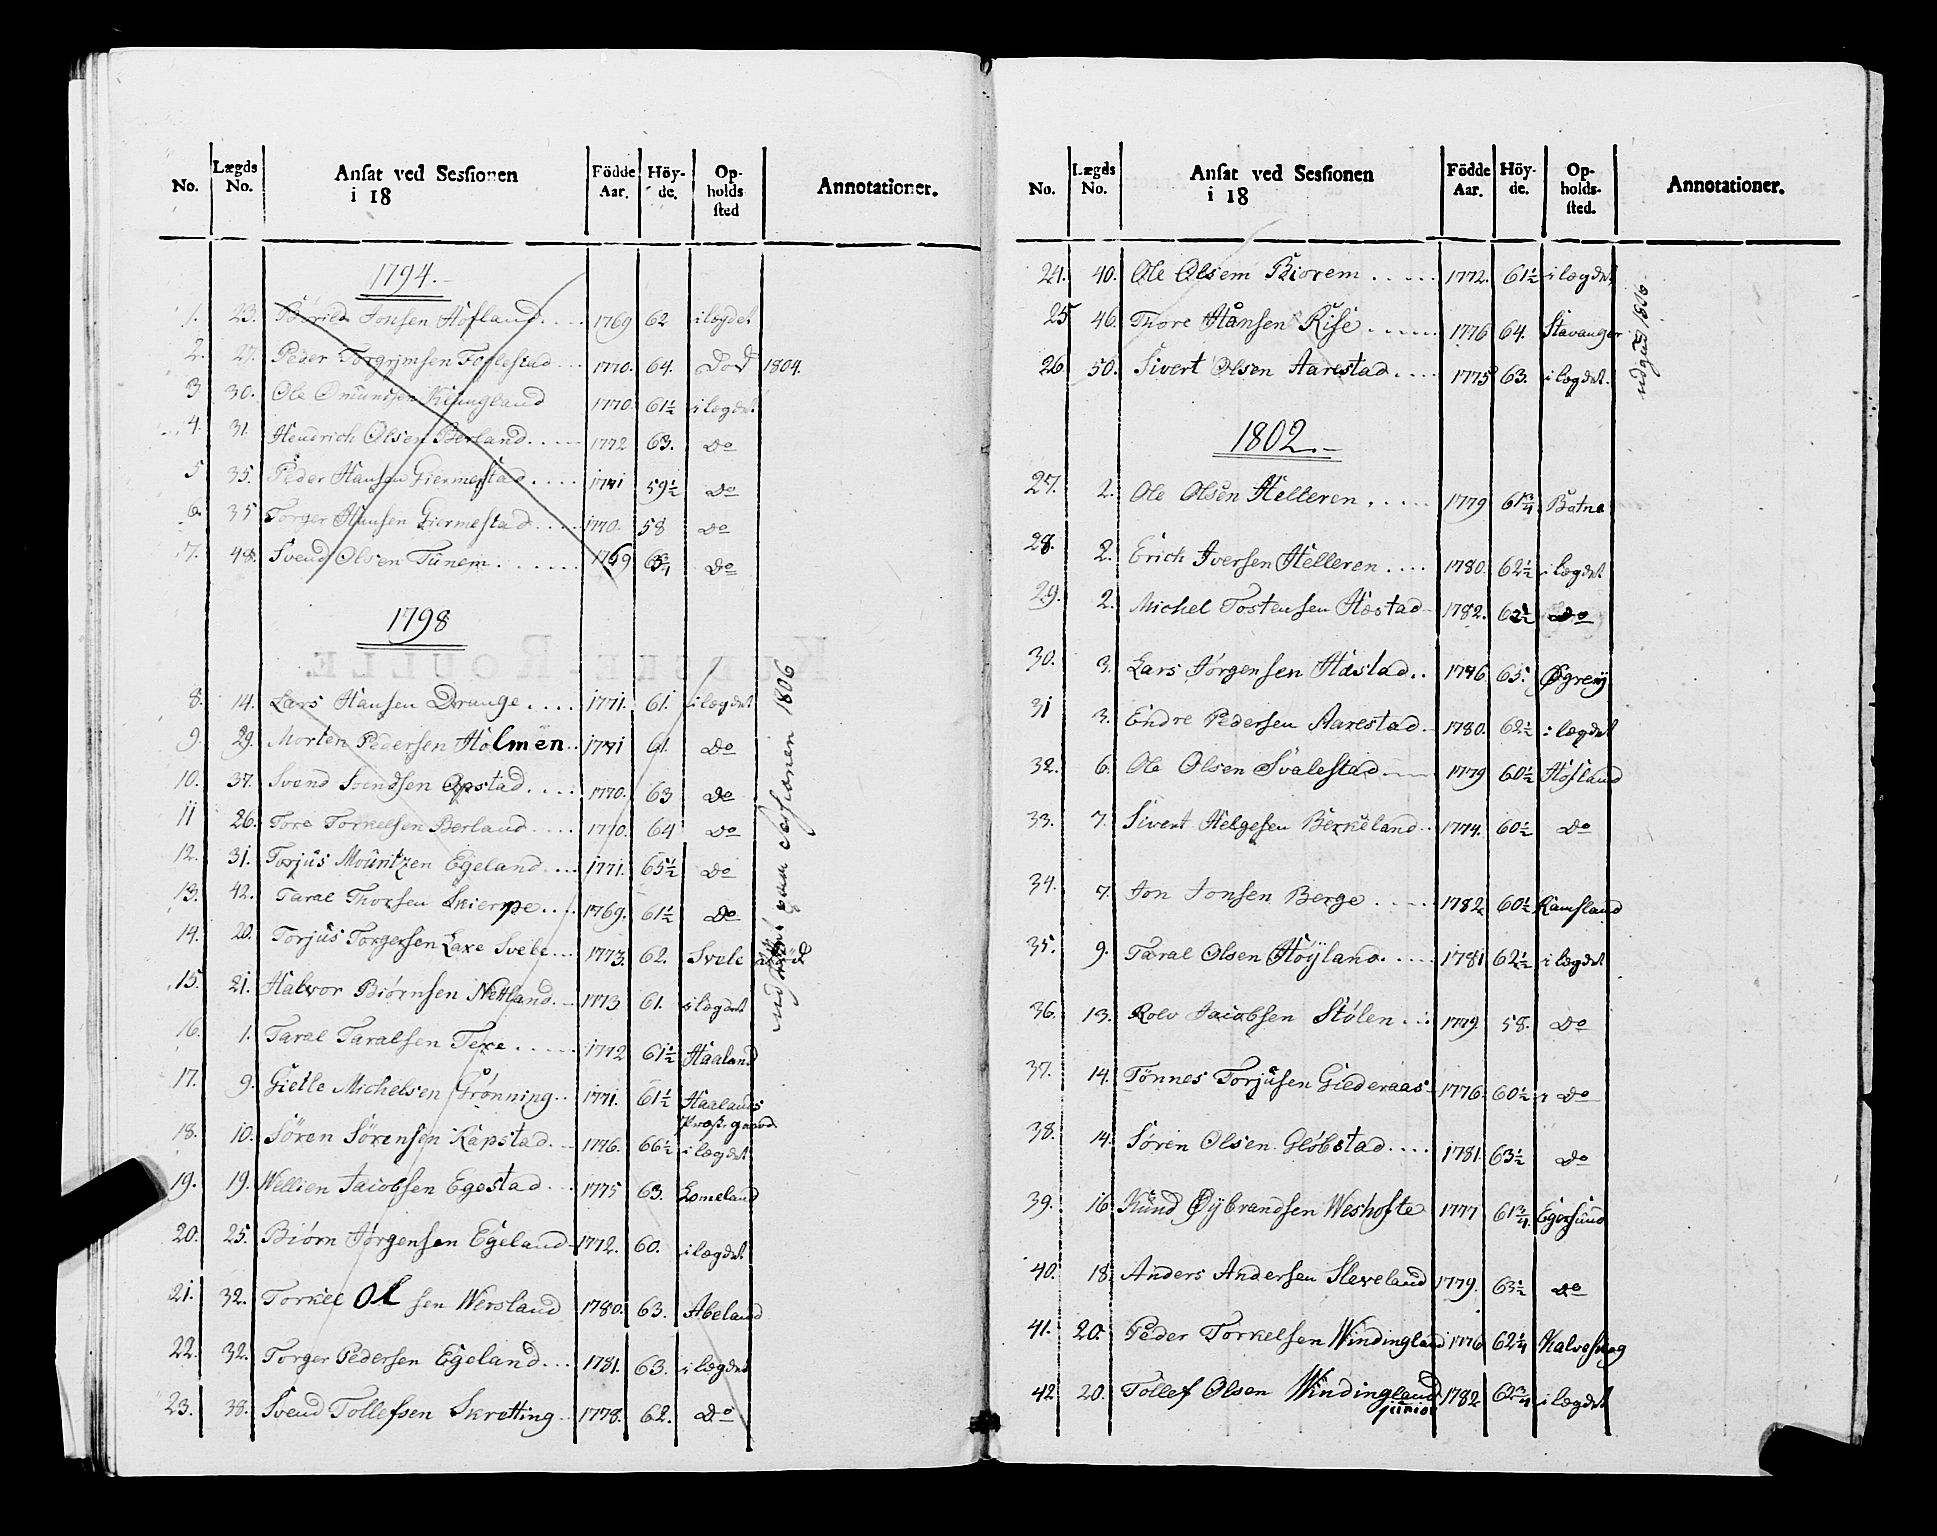 No. Lægds No. Ansat ved Sessionen i 18 Födde Aar. Höy-de. Op-holds sted Annotationer.
1794.
1. 23. Jonsen Höfland.... 1769 62 i lægdet
2. 27. Peder Torgrjmsen Foglestad... 1770. 64. Död 1804.
3 30. Ole Omundsen Klungland 1770. 61½ i lægdet
4. 31. Hendrich Olsen Berland.... 1772 63. Do
5 35. Peder Hansen Giermestad.... 1771 59½ Do
6. 35 Torger Hansen Giermestad.... 1770. 58 Do
7. 48. Svend Olsen Tunem....... 1769 Do
1798
8. 14. Lars Hansen Drange.... 1771. 61. i lægdet
9. 29. Morten Pedersen Holmen.. 1771 61. Do
10. 37. Svend Svendsen Opstad.... 1770. 63 Do
11 26. Tore Torkelsen Berland.... 1770. 64 Do
12. 31. Torjus Mouritzen Egeland... 1771. 65½ Do
13. 42. Taral Thorsen Skierpe... 1769. 61½ Do
14. 20. Torjus Torgersen Laxe Svele... 1773. 62. Svele
15. 21. Halvor Biørnsen Nettland.. 1773 61. i lægdet
16. 1. Taral Taralsen Texe..... 1772 61½ Haaland
17. 9. Gietle Michelsen Grönning.. 1771. 61½ Haalands Præst. gaard
18. 10. Sören Sörensen Kapstad.. 1776. 66½ i lægdet
19. 19. Wellien Jacobsen Egestad... 1775 63. Lomeland
20. 25. Biørn Jørgensen Egeland 1772. 60. i lægdet
21. 32. Torkel Olsen Wersland 1780. 63. Abeland
22. 32. Torger Pedersen Egeland... 1781. 63. i lægdet
23. 38. Svend Tollefsen Skretting.. 1778. 62. Do
udgaar sessionen 1806
No. Lægds No. Ansat ved Sessionen i 18 Födde Aar. Höy-de. Op-holds-sted. Annotationer.
24. 40. Ole Olsem Biorem..... 1772. 61½ i lægdet
25 46. Thore Hansen Rise...... 1776 64. Stavanger
26 50. Sivert Olsen Aarestad.... 1775 63. i lægdet.
udgud 1806
1802.
27. 2. Ole Olsen Helleren..... 1779 61¾ Batne
28. 2. Erich Iversen Helleren.... 1780. 62½ i lægdet
29. 2. Michel Tostensen Hæstad 1782. Do
30. 3. Lars Jørgensen Hæstad.. 1776 65. Øgreij
31 3. Endre Pedersen Aarestad. 1780. 62½ i lægdet
32. 6. Ole Olsen Svalestad 1779 60½ Höfland
33. 7. Sivert Helgesen Berkeland.. 1774. 60½ Do
34. 7. Jon Jonsen Berge..... 1782 60½ Ramsland
35. 9. Taral Olsen Höÿland..... 1781 62½ i lægdet
36. 13. Rolv Jacobsen Stølen... 1779 58. Do
37. 14. Tönnes Torjusen Giederaas 1776. 60½ Do
38. 14. Søren Olsen Gløbstad.... 1781. 63½ Do
39. 16 Knud Øÿbrandsen Weshofte 1777 61¾ Egersund
40. 18. Anders Andersen Sleveland 1779. 63½ Do
41. 20. Peder Torkelsen Windingland 1776 62¼ Kalveskog
42 20. Tollef Olsen Windingland junior 1782 62¾ i lægdet